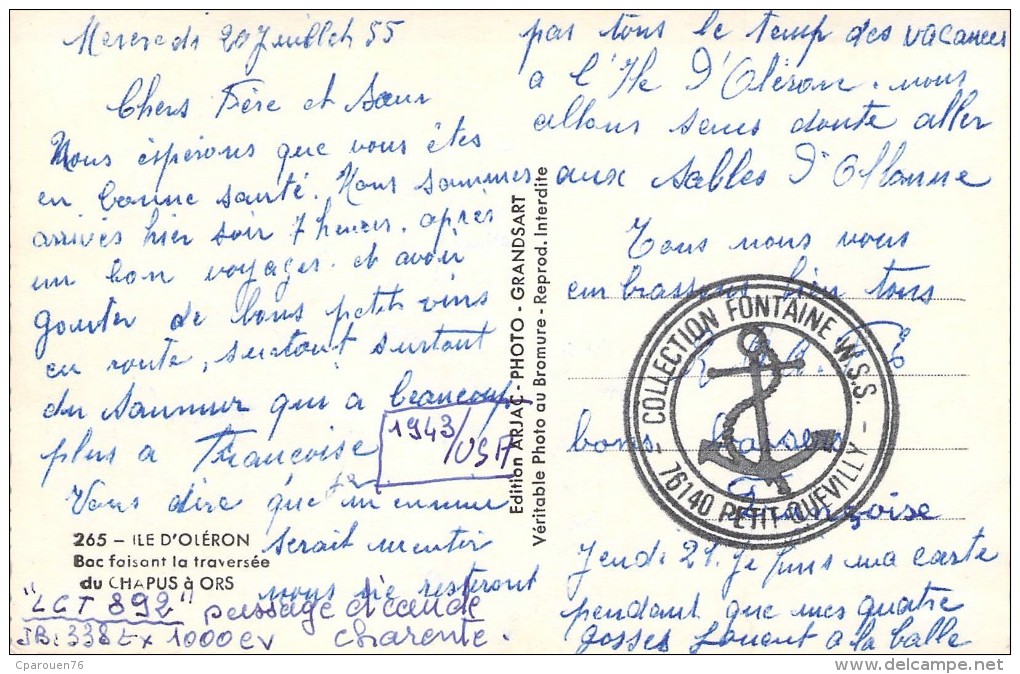 Mercredi 20 Juillet 55
Chers Frère et Sœur
Nous espérons que vous êtes
en bonne santé. Nous sommes
arrivés hier soir 7 heures. après
un bon voyages. et avoir
gouter de bons petit vins
en route, surtout surtout
du Saumur qui a beaucoup
plus a Françoise
Vous dire que m
serait mentir
nous ne resteront
pas tous le temp des vacances
a l'Ile d'Oléron. nous
allons sans doute aller
aux Sables d'Ollonne
Tous nous vous
embrassons bien tous
bons baisers
Françoise
Jeudi 21. Je finis ma carte
pendant que mes quatre
gosses jouent a la balle
1943/USA
265 – ILE D'OLÉRON
Bac faisant la traversée
du CHAPUS à ORS
"LCT 892" passage
JB: 338 Ex 1000 cv Charente.
Edition ARJAC - PHOTO - GRANDSART
Véritable Photo au Bromure - Reprod. Interdite
COLLECTION FONTAINE W.S.S.
- 76140 PETIT-QUEVILLY -
Cparouen76
www.delcampe.net